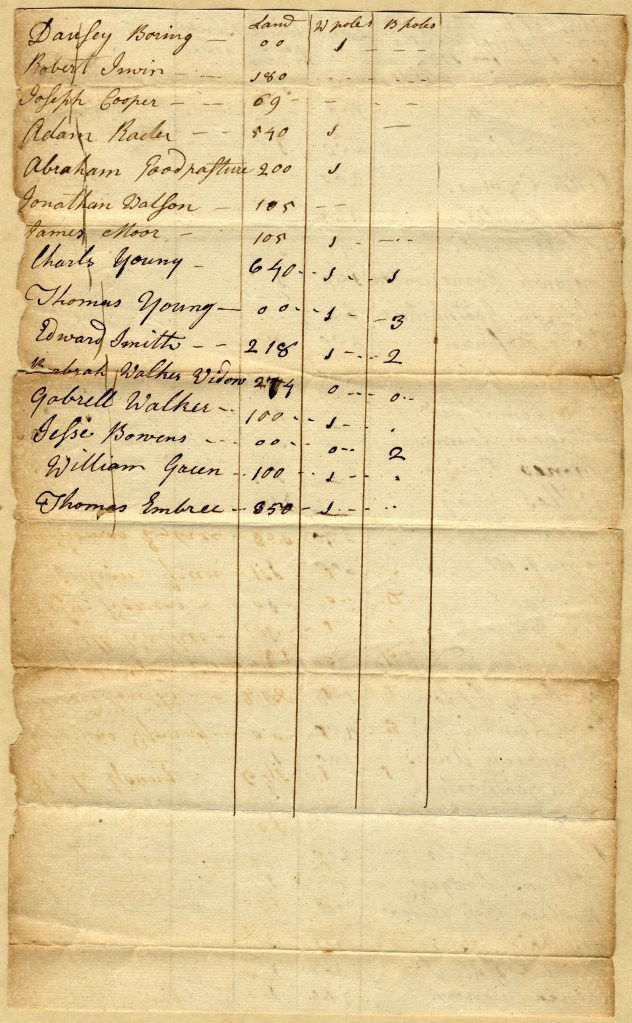 Land W poles B poles
Dausey Boring — 00 1 — —
Robert Irwin — 180
Joseph Cooper — 69 -
Adam Rader — 540 1 —
Abraham Goodpasture 200 1
Jonathan Watson — 105 --
James Moor — 105 1 —
Charls Young — 640 1 1
Thomas Young — 00 1 3
Edward Smith — 218 1 2
Walker Widow 274 0 0
Gabrell Walker — 100 1
Jesse Bowens — 00 0 2
William Green — 100 1
Thomas Embree — 350 1